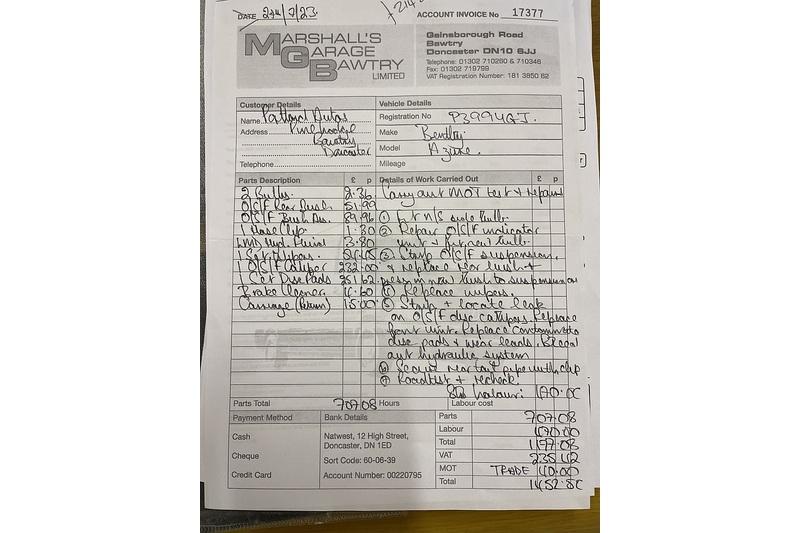 DATE 24/7/23
ACCOUNT INVOICE No 17377
MARSHALL'S
GARAGE
BAWTRY
LIMITED
Gainsborough Road
Bawtry
Doncaster DN10 6JJ
Telephone: 01302 710260 & 710346
Fax: 01302 719799
VAT Registration Number: 181 3850 62
Customer Details
Name
Address Pine Lodge
Bawtry
Doncaster
Telephone
Vehicle Details
Registration No
Make Bentley
Model Azure.
Mileage
Parts Description £ p
2 Bulbs. 2.36
O/S/F Rear Bush 51.99
O/S/F Bush 89.96
1 Hose Clip 1.30
Hyd. Fluid 3.80
1 Set Wipers
1 O/S/F Caliper 232.00
1 Set Disc Pads 251.62
Brake Cleaner. 4.60
Carriage (Return) 15.00
Parts Total 707.08
Details of Work Carried Out £ p
Carry out MOT test & repairs
① n/s side bulb.
② Repair O/S/F indicator
unit & fit new bulb.
③ Strip O/S/F suspension.
& replace rear bush &
new bush to suspension
④ Replace wipers.
⑤ Strip & locate leak
on O/S/F disc calipers. Replace
front unit. Replace
disc pads & wear leads. Bleed
out hydraulic system
⑥ Secure rear tail pipe with clip
⑦ Roadtest & recheck.
labour: 470.00
Hours
Labour cost
Payment Method
Cash
Cheque
Credit Card
Bank Details
Natwest, 12 High Street,
Doncaster, DN1 1ED
Sort Code: 60-06-39
Account Number: 00220795
Parts 707.08
Labour 470.00
Total 1177.08
VAT 235.42
MOT TRADE 40.00
Total 1452.50